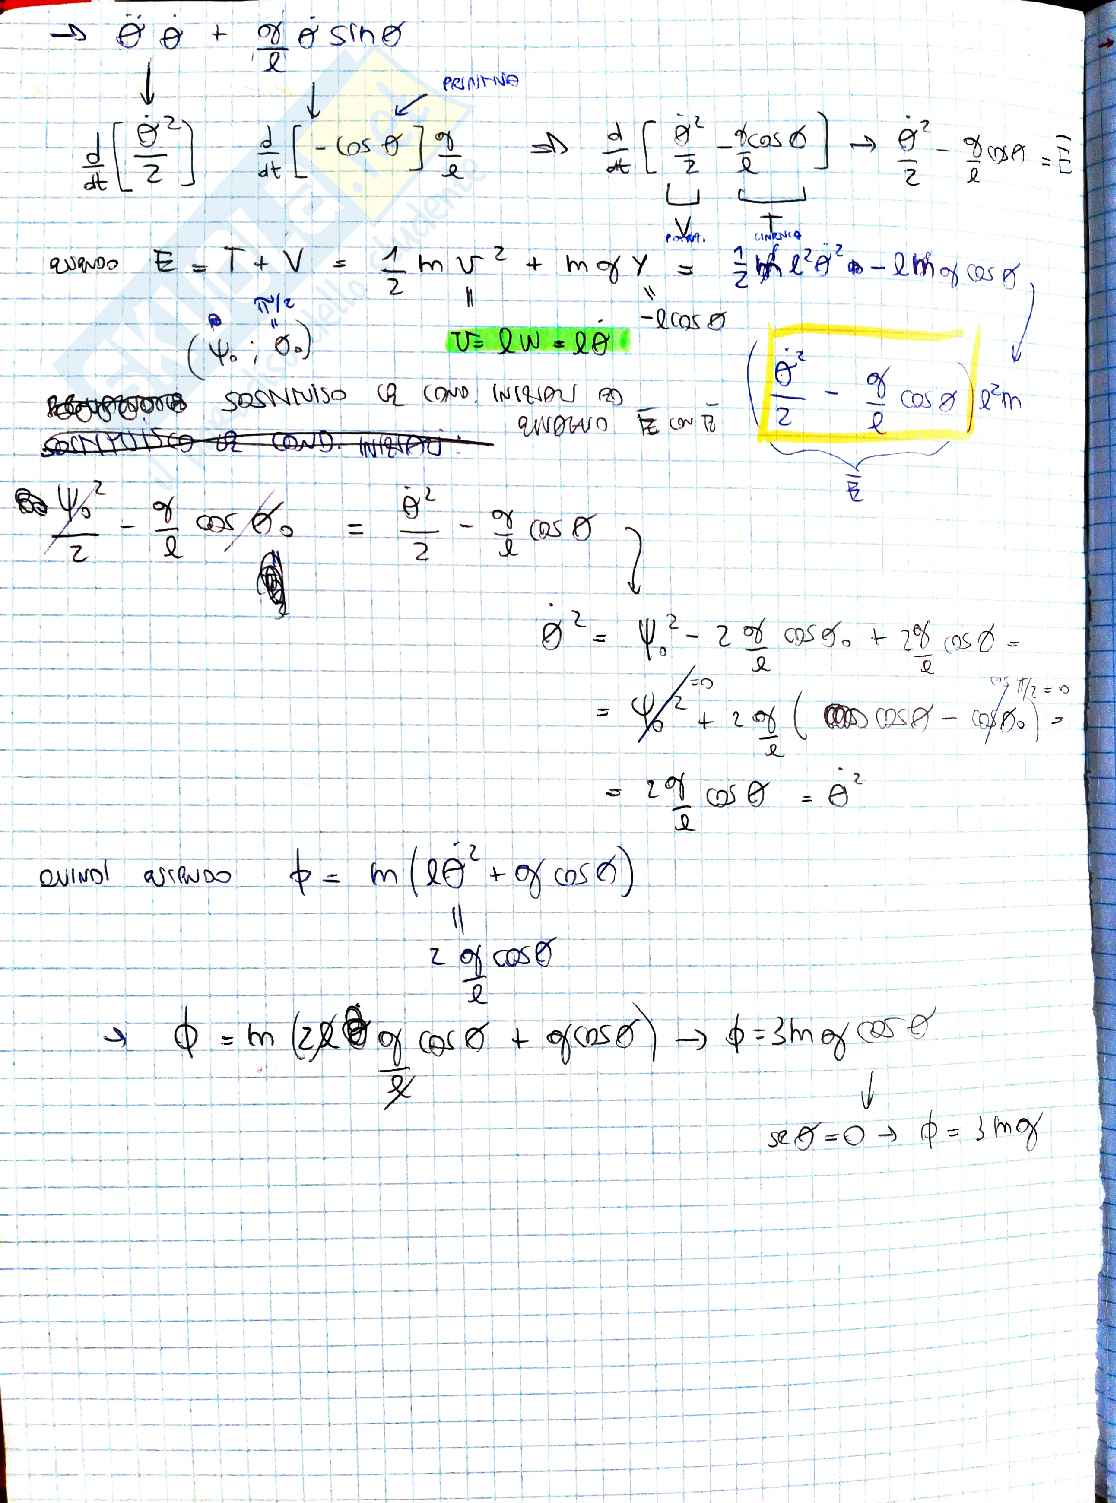 → θ̈ θ̇ + g/l θ̇ sinθ
PRIMITIVA
d/dt [θ̇²/2] d/dt [-cosθ] g/l ⇒ d/dt [θ̇²/2 - g/l cosθ] → θ̇²/2 - g/l cosθ = Ē
V T
POTEN. CINETICA
QUANDO E = T + V = 1/2 m v² + m g y = 1/2 m l² θ̇² - l m g cosθ
π/2 = 0 -l cosθ
(ψ₀ ; θ₀) v = lω = lθ̇
(θ̇²/2 - g/l cosθ) l² m
SOSTITUISCO LE COND. INIZIALI ED
EGUAGLIO Ē CON Ē
SOSTITUISCO LE COND. INIZIALI.
Ē
ψ₀²/2 - g/l cosθ₀ = θ̇²/2 - g/l cosθ
θ̇² = ψ₀² - 2 g/l cosθ₀ + 2 g/l cosθ =
=0 cos π/2 = 0
= ψ₀² + 2 g/l ( cosθ - cosθ₀ ) =
= 2 g/l cosθ = θ̇²
QUINDI ESSENDO ϕ = m (lθ̇² + g cosθ)
=
2 g/l cosθ
→ ϕ = m (2l g/l cosθ + g cosθ) → ϕ = 3mg cosθ
se θ = 0 → ϕ = 3mg